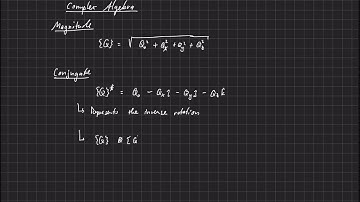 Complex Algebra
Magnitude
{Q} = √Q₀² + Qₓ² + Qᵧ² + Q₃²
Conjugate
{Q}* = Q₀ - Qₓî - Qᵧĵ - Q₃k̂
↳ Represents the inverse rotation
↳ {Q} ⊗ {Q